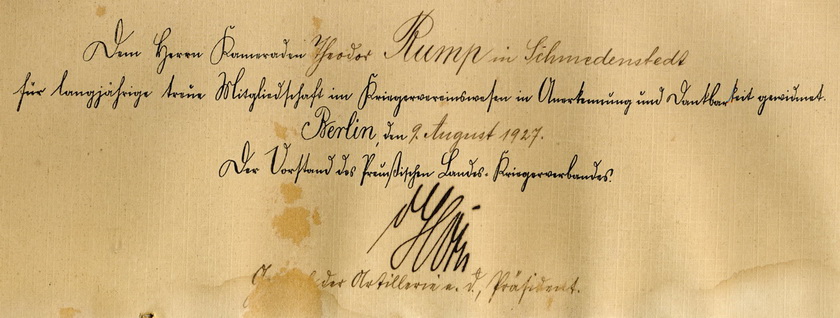 Dem Herrn Kameraden Theodor Rump in Schmedenstedt
für langjährige treue Mitgliedschaft im Kriegervereinswesen in Anerkennung und Dankbarkeit gewidmet.
Berlin, den 9. August 1927.
Der Vorstand des Preußischen Landes-Kriegerverbandes.
der Artillerie a. D., Präsident.